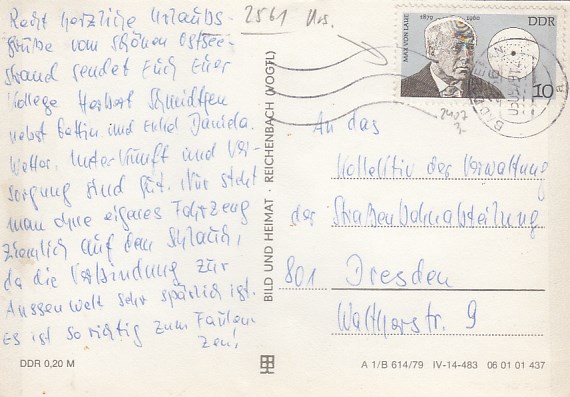 Recht herzliche Urlaubs-
grüße vom schönen Ostsee-
strand sendet Euch Euer
Kollege Herbert Schmidtgen
nebst Gattin und Enkel Daniela.
Wetter, Unterkunft und Ver-
sorgung sind gut. Nur steht
man ohne eigenes Fahrzeug
ziemlich auf dem Schlauch,
da die Verbindung zur
Aussenwelt sehr spärlich ist.
Es ist so richtig zum Faulen-
zen!
DDR 0,20 M
2561 Urs.
BILD UND HEIMAT · REICHENBACH (VOGTL)
MAX VON LAUE
1879 1960
DDR
10
2407
An das
Kollektiv der Verwaltung
der Straßenbahnabteilung
801 Dresden
Waltherstr. 9
A 1/B 614/79 IV-14-483 06 01 01 437